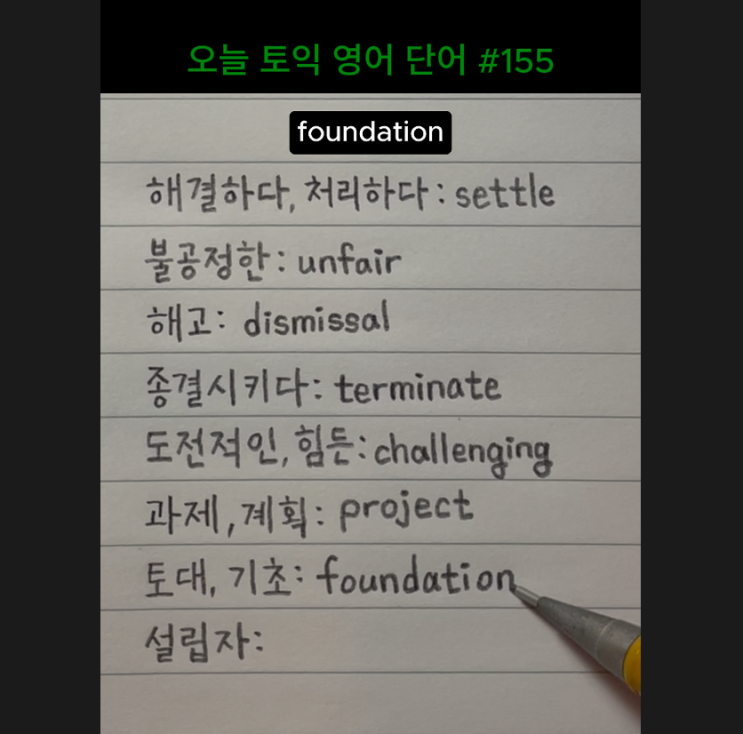 오늘 토익 영어 단어 #155
foundation
해결하다, 처리하다: settle
불공정한: unfair
해고: dismissal
종결시키다: terminate
도전적인, 힘든: challenging
과제, 계획: project
토대, 기초: foundation
설립자: